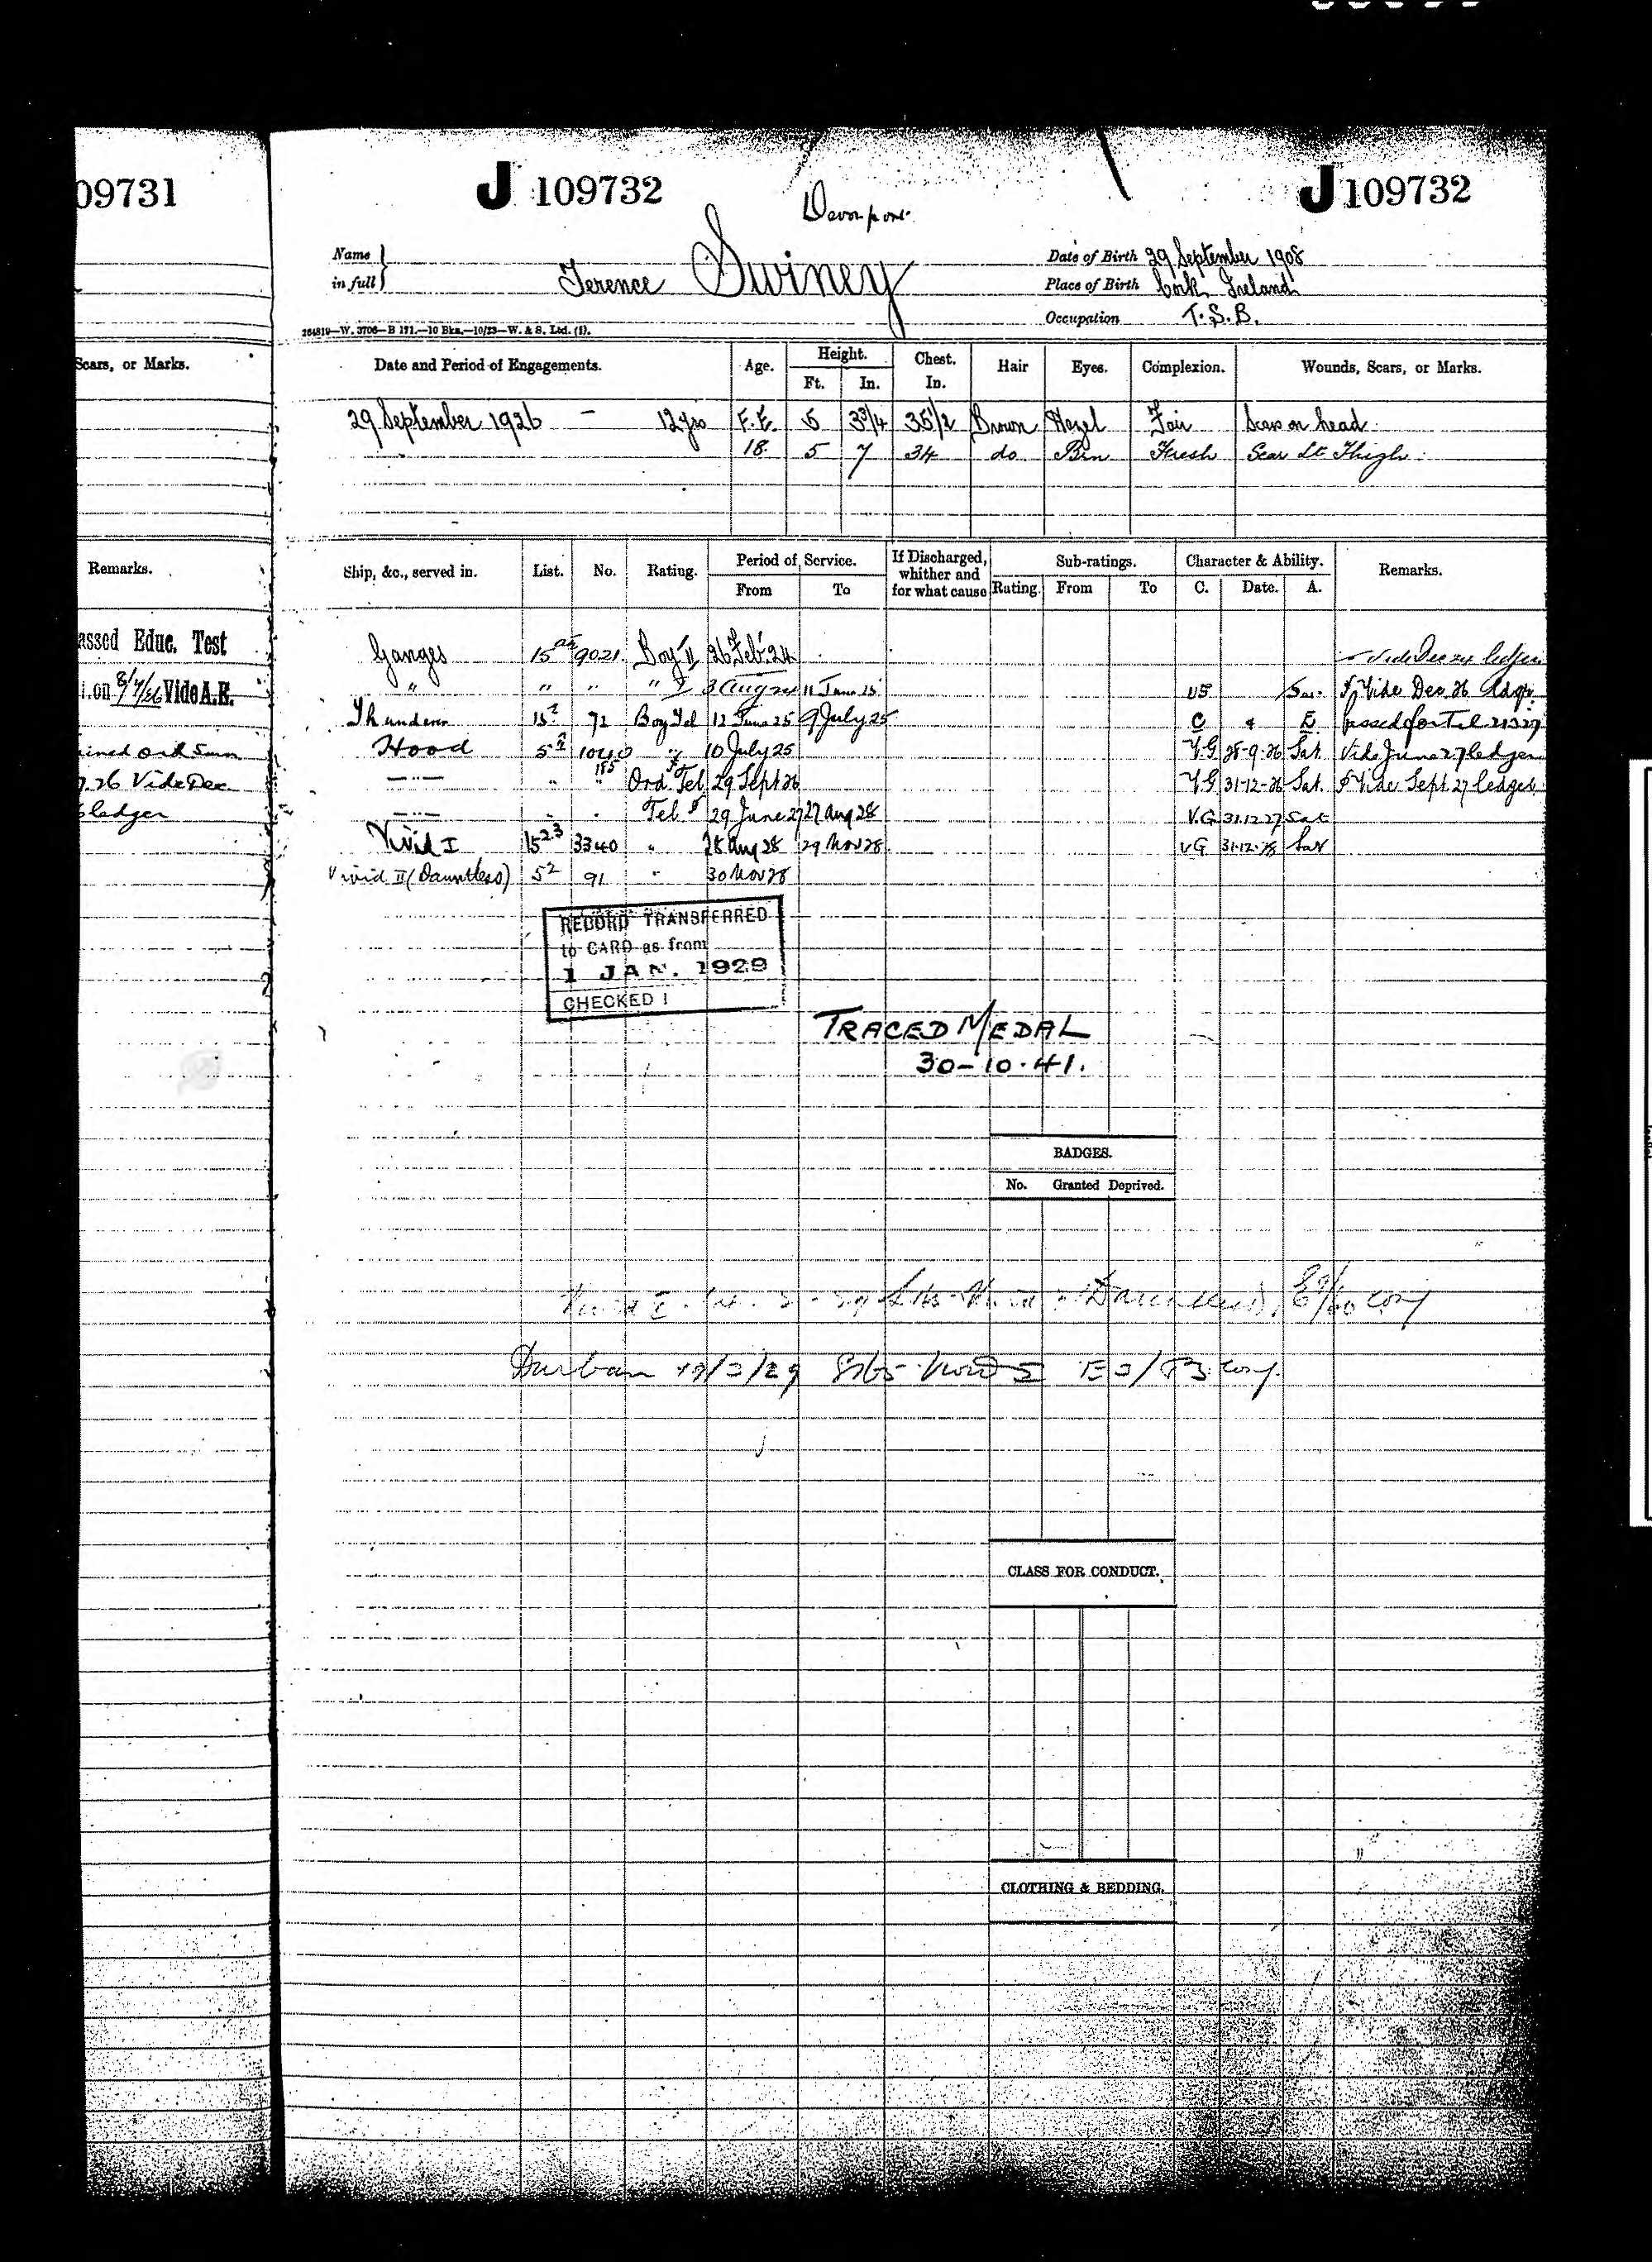 09731
J 109732
Devonport
J 109732
Name in full
Terence Swiney
Date of Birth 29 September 1908
Place of Birth Cork Ireland
Occupation T.S.B.
264819—W. 3706—B 171.—10 Bks.—10/23—W. & S. Ltd. (1).
Scars, or Marks.
Date and Period of Engagements. Age. Height. Ft. In. Chest. In. Hair Eyes. Complexion. Wounds, Scars, or Marks.
29 September 1926 — 12 yrs F.E. 5 3 3/4 35 1/2 Brown Hazel Fair Scars on head
18 5 7 34 do Brn Fresh Scar Lt Thigh
Remarks.
Ship, &c., served in. List. No. Rating. Period of Service. From To If Discharged, whither and for what cause Sub-ratings. Rating. From To Character & Ability. C. Date. A. Remarks.
assed Educ. Test
on 8/7/26 Vide A.E.
ained ord
26 Vide Dec
ledger
Ganges 15 9021 Boy II 26 Feb 24 Vide Dec 24 ledger
" " " " I 3 Aug 24 11 June 25 Vide Dec 26
Thunderer 15 72 Boy Tel 12 June 25 9 July 25 C & E passed for Tel
Hood 5 " 10 July 25 V.G 28-9-26 Sat. Vide June 27 ledger
—"— " " 185 Ord Tel 29 Sept 26 V.G 31-12-26 Sat. Vide Sept 27 ledger
—"— Tel 29 June 27 27 Aug 28 V.G 31.12.27 Sat
Vivid I 15 23 3340 " 28 Aug 28 29 Nov 28 VG 31-12-28 Sat
Vivid II (Dauntless) 5 2 91 " 30 Nov 28
RECORD TRANSFERRED
to CARD as from
1 JAN. 1929
CHECKED
TRACED MEDAL
30-10-41.
BADGES.
No. Granted Deprived.
Durban
CLASS FOR CONDUCT.
CLOTHING & BEDDING.